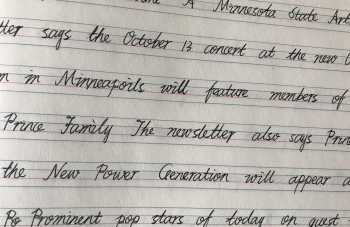 A Minnesota State
says the October 13 concert at the new
in Minneapoils will feature members of
Prince Family The newsletter also says
the New Power Generation will appear
Prominent pop stars of today on guest